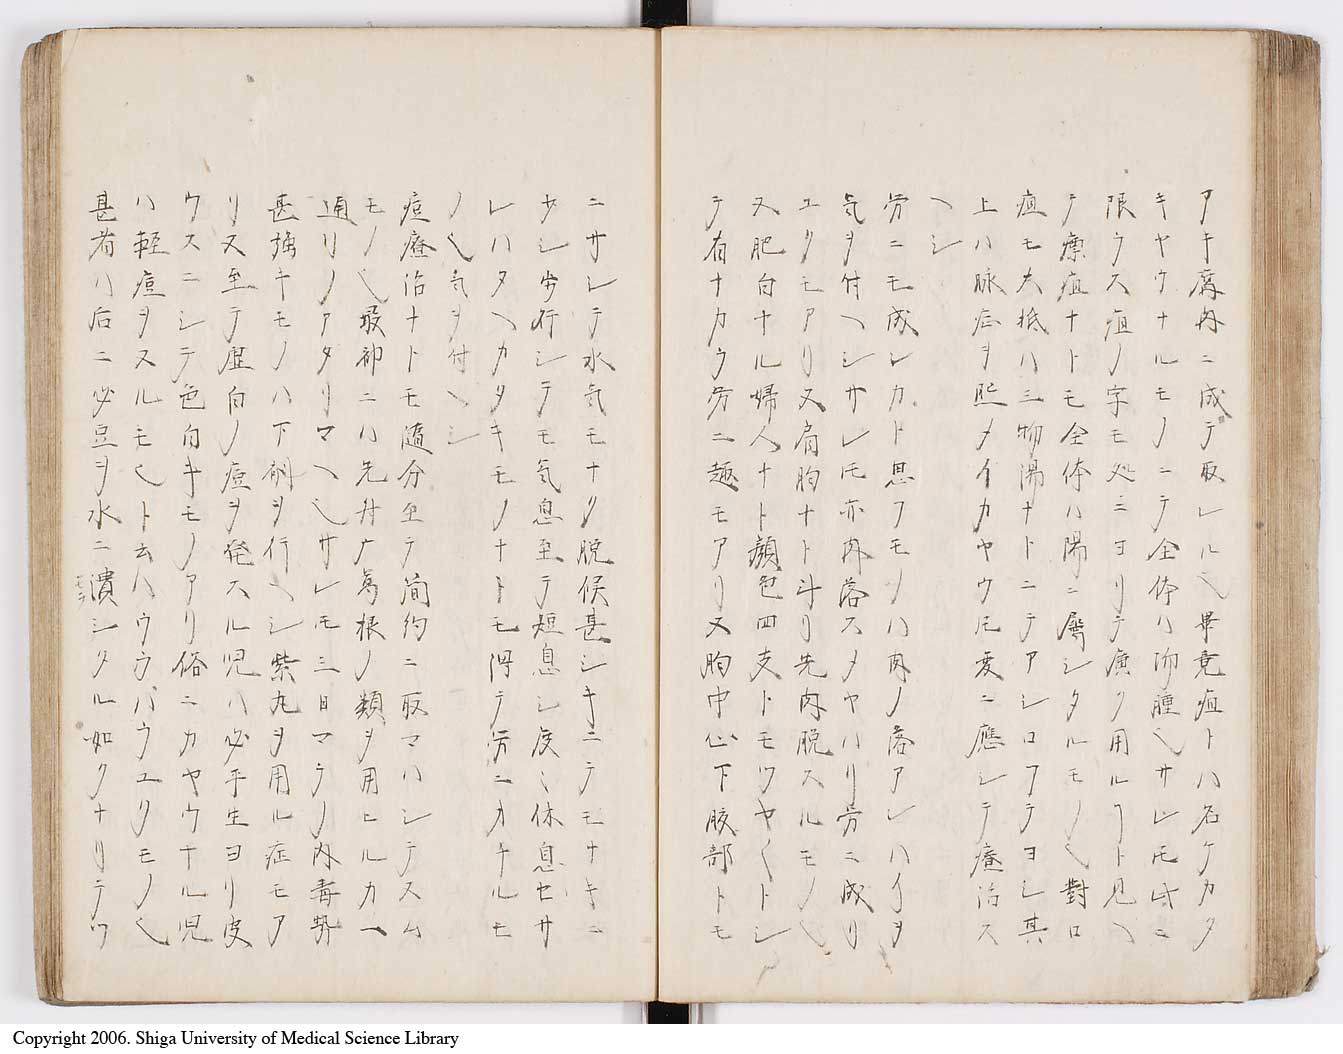 アキ腐肉ニ成テ取レル也畢竟疽トハ名ケカタ
キヤウナルモノニテ全体ハ肿腫也サレ𪜈此ニ
限ラス疽ノ字モ処ニヨリテ廣ク用ルヿト見ヘ
テ瘭疽ナトモ全体ハ陽ニ屬シタルモノ也對口
疽モ大抵ハ三物湯ナトニテアシロフテヨシ其
上ハ脉症ヲ熙メイカヤウ𪜈変ニ應シテ療治ス
ヘシ
労ニモ成レカト思フモノハ肉ノ落アンハイヲ
気ヲ付ヘシサレ𪜈亦肉落スメヤハリ労ニ成リ
ユクモアリ又肩胸ナト斗リ先肉脱スルモノ也
又肥白ナル婦人ナト顔色四支トモツヤ〱トシ
テ有ナカラ労ニ趣モアリ又胸中心下腹部トモ
ニサシテ水気モナク脱候甚シキニテモナキニ
少シ歩行シテモ気息至テ短息シ度〻休息セサ
レハタヘカタキモノナトモ得テ労ニカナルモ
ノ也気ヲ付ヘシ
痘療治ナトモ随分至テ簡約ニ取マハシテスム
モノ也最初ニハ先升广葛根ノ類ヲ用ヒルカ一
通リノアタリマヘ也サレモ三日マテノ内毒勢
甚強キモノハ下剤ヲ行ヘシ紫丸ヲ用ル症モア
リ又至テ歴白ノ痘ヲ発スル児ハ必平生ヨリ皮
ウスニシテ色白キモノアリ俗ニカヤウナル児
ハ軽痘ヲスルモ也ト云ハウラハラユクモノ也
甚者ハ后ニ必豆ヲ水ニ潰シタル如クナリテツ